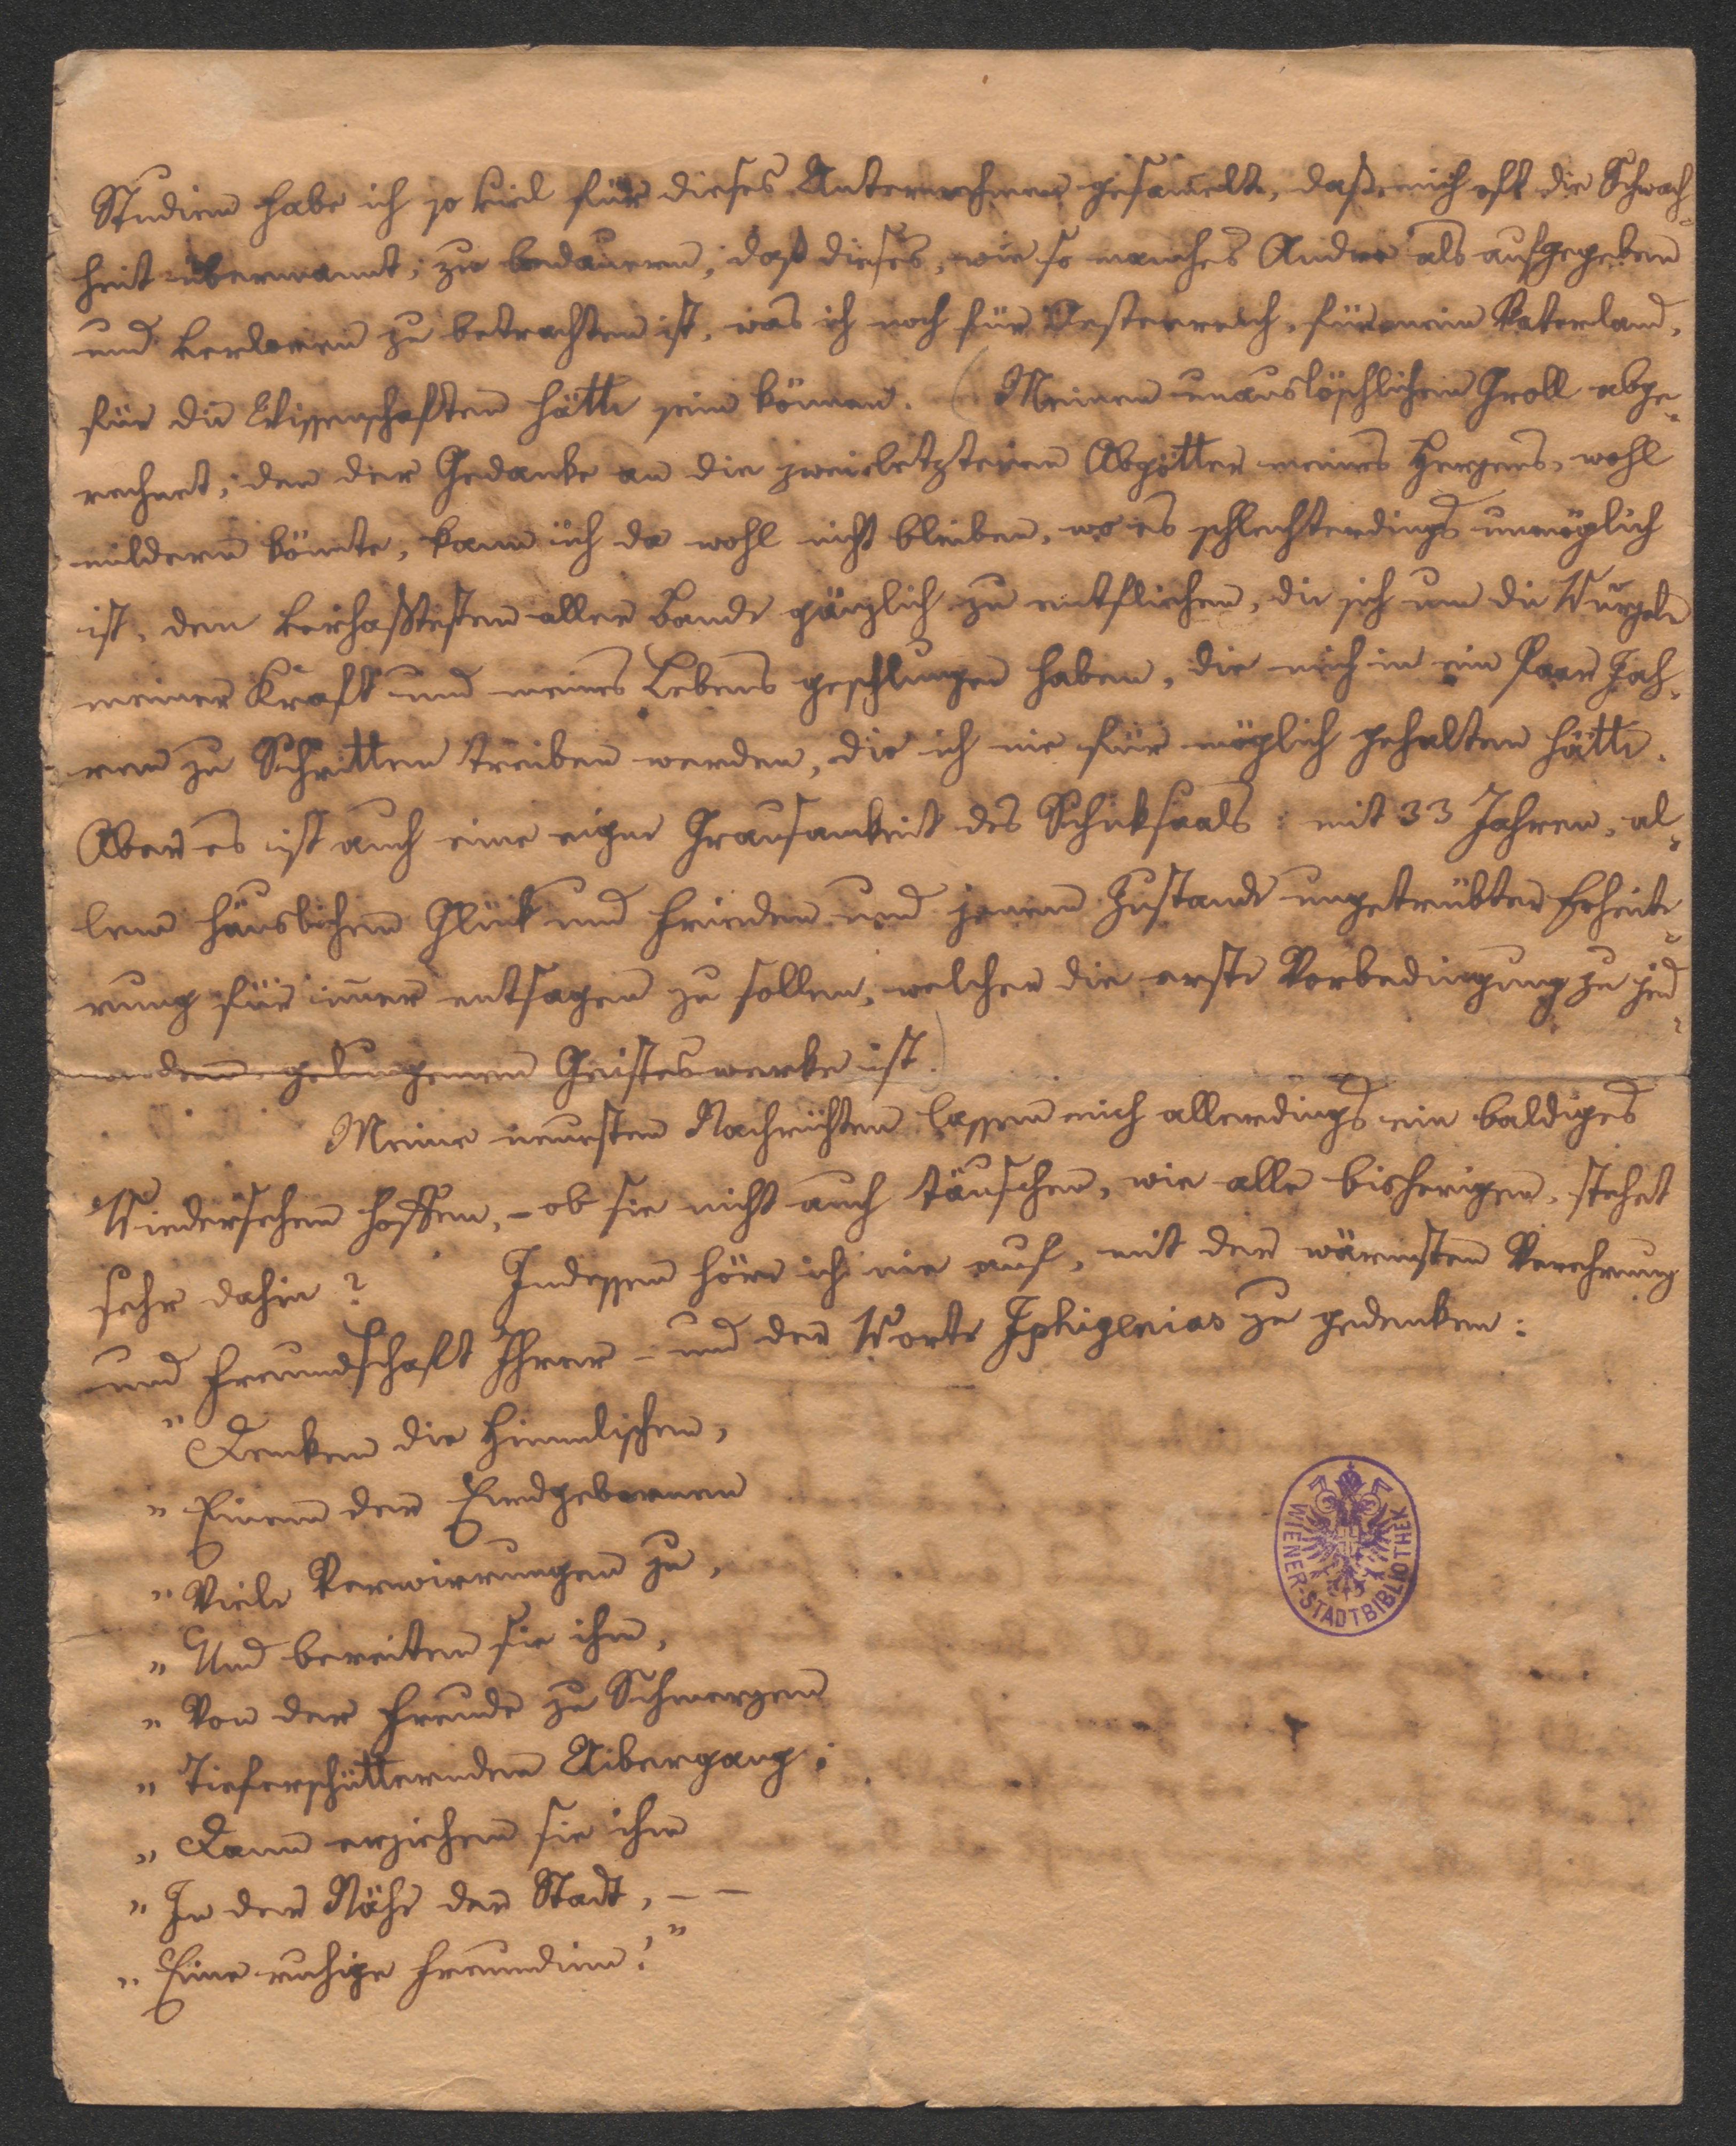 Studien habe ich so viel für dieses Unternehmen gesam̅elt, daß mich oft die Schwach¬
heit übermannt, zu bedauern, daß dieses, wie so manches Andre als aufgegeben
und verloren zu betrachten ist, was ich noch für Oesterreich, für mein Vaterland,
für die Wissenschaften hätte sein können. (Meinen unauslöschlichen Groll abge¬
rechnet, den der Gedanke an die zwei letzteren Abgötter meines Herzens, wohl
mildern könnte, kann ich da wohl nicht bleiben, wo es schlechterdings unmöglich
ist, den verhaßtesten aller Bande gänzlich zu entfliehen, die sich um die Wurzeln
meiner Kraft und meines Lebens geschlungen haben, die mich in ein Paar Jah¬
ren zu Schritten treiben werden, die ich nie für möglich gehalten hätte.
Aber es ist auch eine eigne Grausamkeit des Schiksaals: mit 33 Jahren, al¬
lem häuslichem Glück und Frieden und jenem Zustande ungetrübter Erheite¬
rung für im̅er entsagen zu sollen, welcher die erste Vorbedingung zu jed¬
wedem gelungenem Geisteswerke ist.)
Meine neuesten Nachrichten lassen mich allerdings ein baldiges
Wiedersehen hoffen, – ob sie nicht auch täuschen, wie alle bisherigen, stehet
sehr dahin? Indessen höre ich nie auf, mit der wärmsten Verehrung
und Freundschaft Ihrer – und der Worte Iphigenias zu gedenken:
„ Denken die Himmlischen,
„ Einem der Erdgebornen
„ Viele Verwirrungen zu,
„ Und bereiten sie ihm,
„ Von der Freude zu Schmerzen
„ Tieferschütternden Uibergang;
„ Dann erziehen sie ihm
„ In der Nähe der Stadt, – –
„ Eine ruhige Freundinn!“
WIENER-STADTBIBLIOTHEK